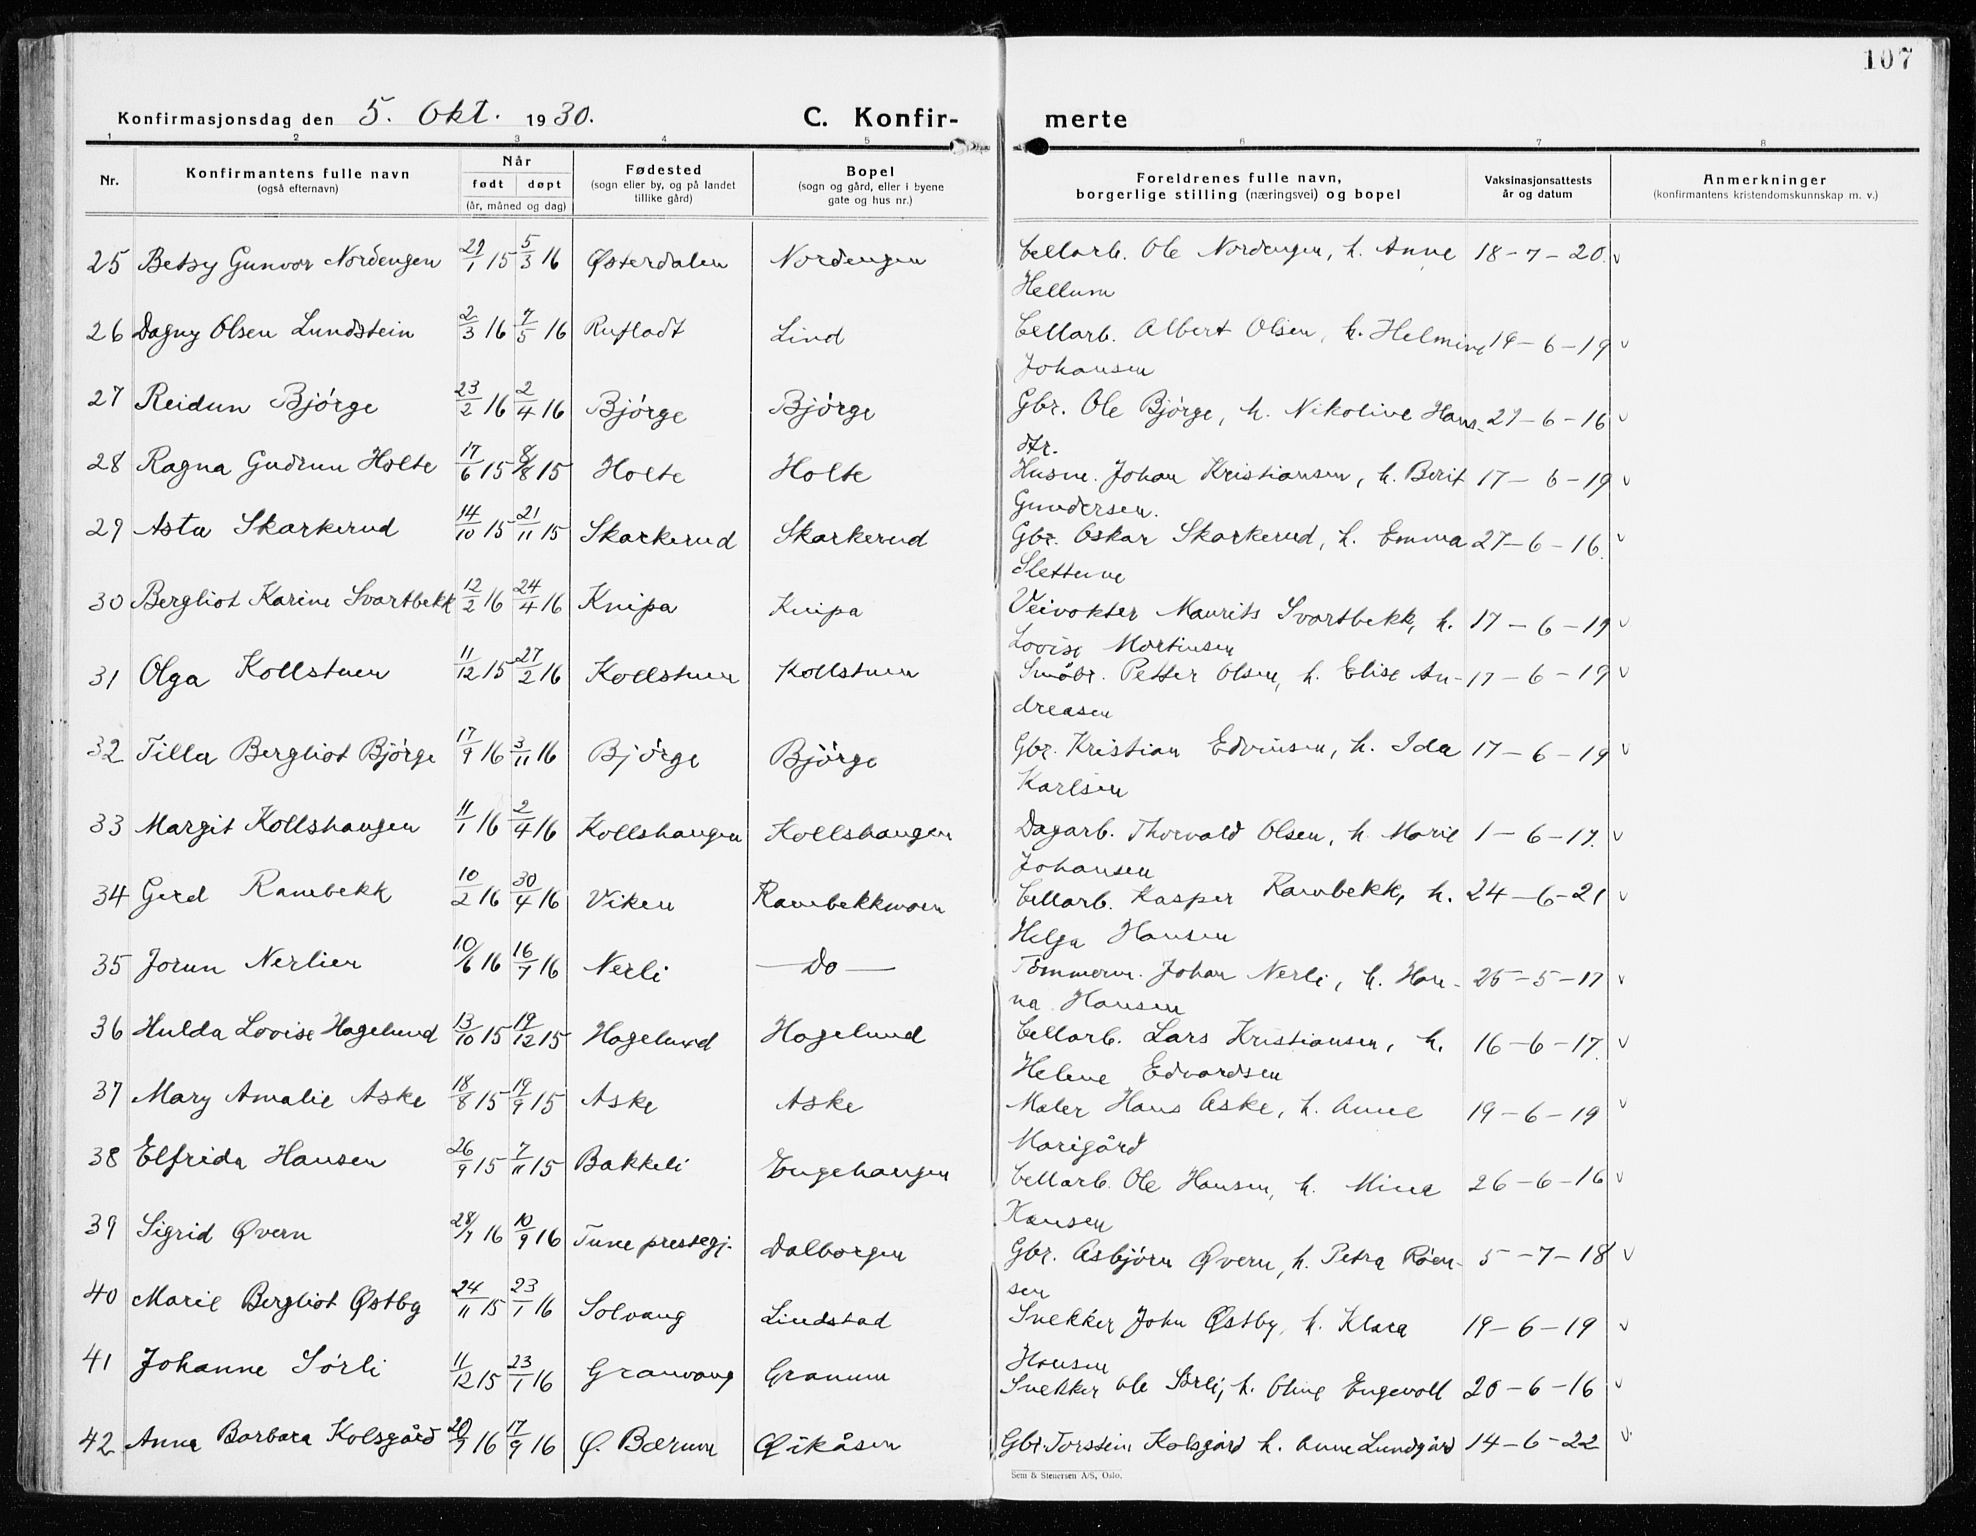 107
Konfirmasjonsdag den 5. Okt. 1930. C. Konfir- merte
1 2 3 4 5 6 7 8
Nr. Konfirmantens fulle navn (også efternavn) Når født døpt (år, måned og dag) Fødested (sogn eller by, og på landet tillike gård) Bopel (sogn og gård, eller i byene gate og hus nr.) Foreldrenes fulle navn, borgerlige stilling (næringsvei) og bopel Vaksinasjonsattests år og datum Anmerkninger (konfirmantens kristendomskunnskap m. v.)
25 Betsy Gunvor Nordengen 29/1 15 5/3 16 Østerdalen Nordengen Cellarb. Ole Nordengen, h. Anne 18-7-20. v
Hellum
26 Dagny Olsen Lundstein 2/3 16 7/5 16 Rufladt Lind Cellarb. Albert Olsen, h. Helmine 19-6-19 v
Johansen
27 Reidun Bjørge 23/2 16 2/4 16 Bjørge Bjørge Gbr. Ole Bjørge, h. Nikoline Hans- 27-6-16 v
dtr.
28 Ragna Gudrun Holte 17/6 15 8/8 15 Holte Holte Husm. Johan Kristiansen, h. Berit 17-6-19 v
Gundersen.
29 Asta Skarkerud 14/10 15 21/11 15 Skarkerud Skarkerud Gbr. Oskar Skarkerud, h. Emma 27-6-16. v
Sletterne
30 Bergliot Karine Svartbekk 12/2 16 24/4 16 Knipa Knipa Veivokter Maurits Svartbekk, h. 17-6-19 v
Lovise Martinsen
31 Olga Kollstuen 11/12 15 27/2 16 Kollstuen Kollstuen Småbr. Petter Olsen, h. Elise An- 17-6-19 v
dreasen
32 Tilla Bergliot Bjørge 17/9 16 3/11 16 Bjørge Bjørge Gbr. Kristian Edvinsen, h. Ida 17-6-19 v
Karlsen
33 Margit Kollshaugen 11/1 16 2/4 16 Kollshaugen Kollshaugen Dagarb. Thorvald Olsen, h. Marie 1-6-17. v
Johansen
34 Gerd Rambekk 10/2 16 30/4 16 Viken Rambekkmoen Cellarb. Kasper Rambekk, h. 24-6-21 v
Helga Hansen
35 Jorun Nerlien 10/6 16 16/7 16 Nerli — Do — Tømmerm. Johan Nerli, h. Han- 25-5-17 v
na Hansen
36 Hulda Lovise Hagelund 13/10 15 19/12 15 Hagelund Hagelund Cellarb. Lars Kristiansen, h. 16-6-17. v
Helene Edvardsen
37 Mary Amalie Aske 18/8 15 19/9 15 Aske Aske Maler Hans Aske, h. Anne 19-6-19 v
Marigård
38 Elfrida Hansen 26/9 15 7/11 15 Bakkeli Engehaugen Cellarb. Ole Hansen, h. Mina 26-6-16 v
Hansen
39 Sigrid Øvern 28/7 16 10/9 16 Tune prestegj. Dalborgen Gbr. Asbjørn Øvern, h. Petra Røen- 5-7-18 v
sen
40 Marie Bergliot Østby 24/11 15 23/1 16 Solvang Lindstad Snekker John Østby, h. Klara 19-6-19 v
Hansen
41 Johanne Sørli 11/12 15 23/1 16 Granvang Granum Snekker Ole Sørli, h. Oline Engevoll 20-6-16 v
42 Anna Barbara Kolsgård 20/7 16 17/9 16 Ø. Bærum Ø. Kåsen Gbr. Torstein Kolsgård h. Anne Lundgård 14-6-22 v
Sem & Stenersen A/S, Oslo.